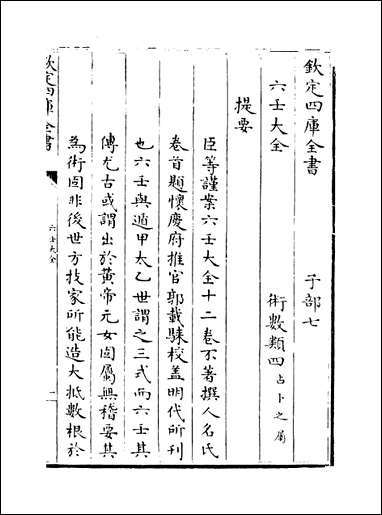 欽定四庫全書
子部七
六壬大全
術數類四占卜之屬
提要
臣等謹案六壬大全十二卷不著撰人名氏
卷首題懷慶府推官郭載騋校蓋明代所刊
也六壬與遁甲太乙世謂之三式而六壬其
傳尤古或謂出於黃帝元女固屬無稽要其
為術固非後世方技家所能造大抵數根於
欽定四庫全書
六壬大全